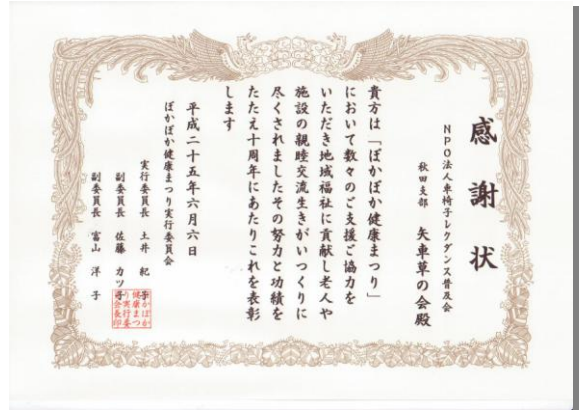 感謝状
NPO法人車椅子レクダンス普及会
秋田支部 矢車草の会殿
貴方は「ぽかぽか健康まつり」
において数々のご支援ご協力を
いただき地域福祉に貢献し老人や
施設の親睦交流生きがいつくりに
尽くされましたその努力と功績を
たたえ十周年にあたりこれを表彰
します
平成二十五年六月六日
ぽかぽか健康まつり実行委員会
実行委員長 土井 紀子
副委員長 佐藤 カツ子
副委員長 富山 洋子